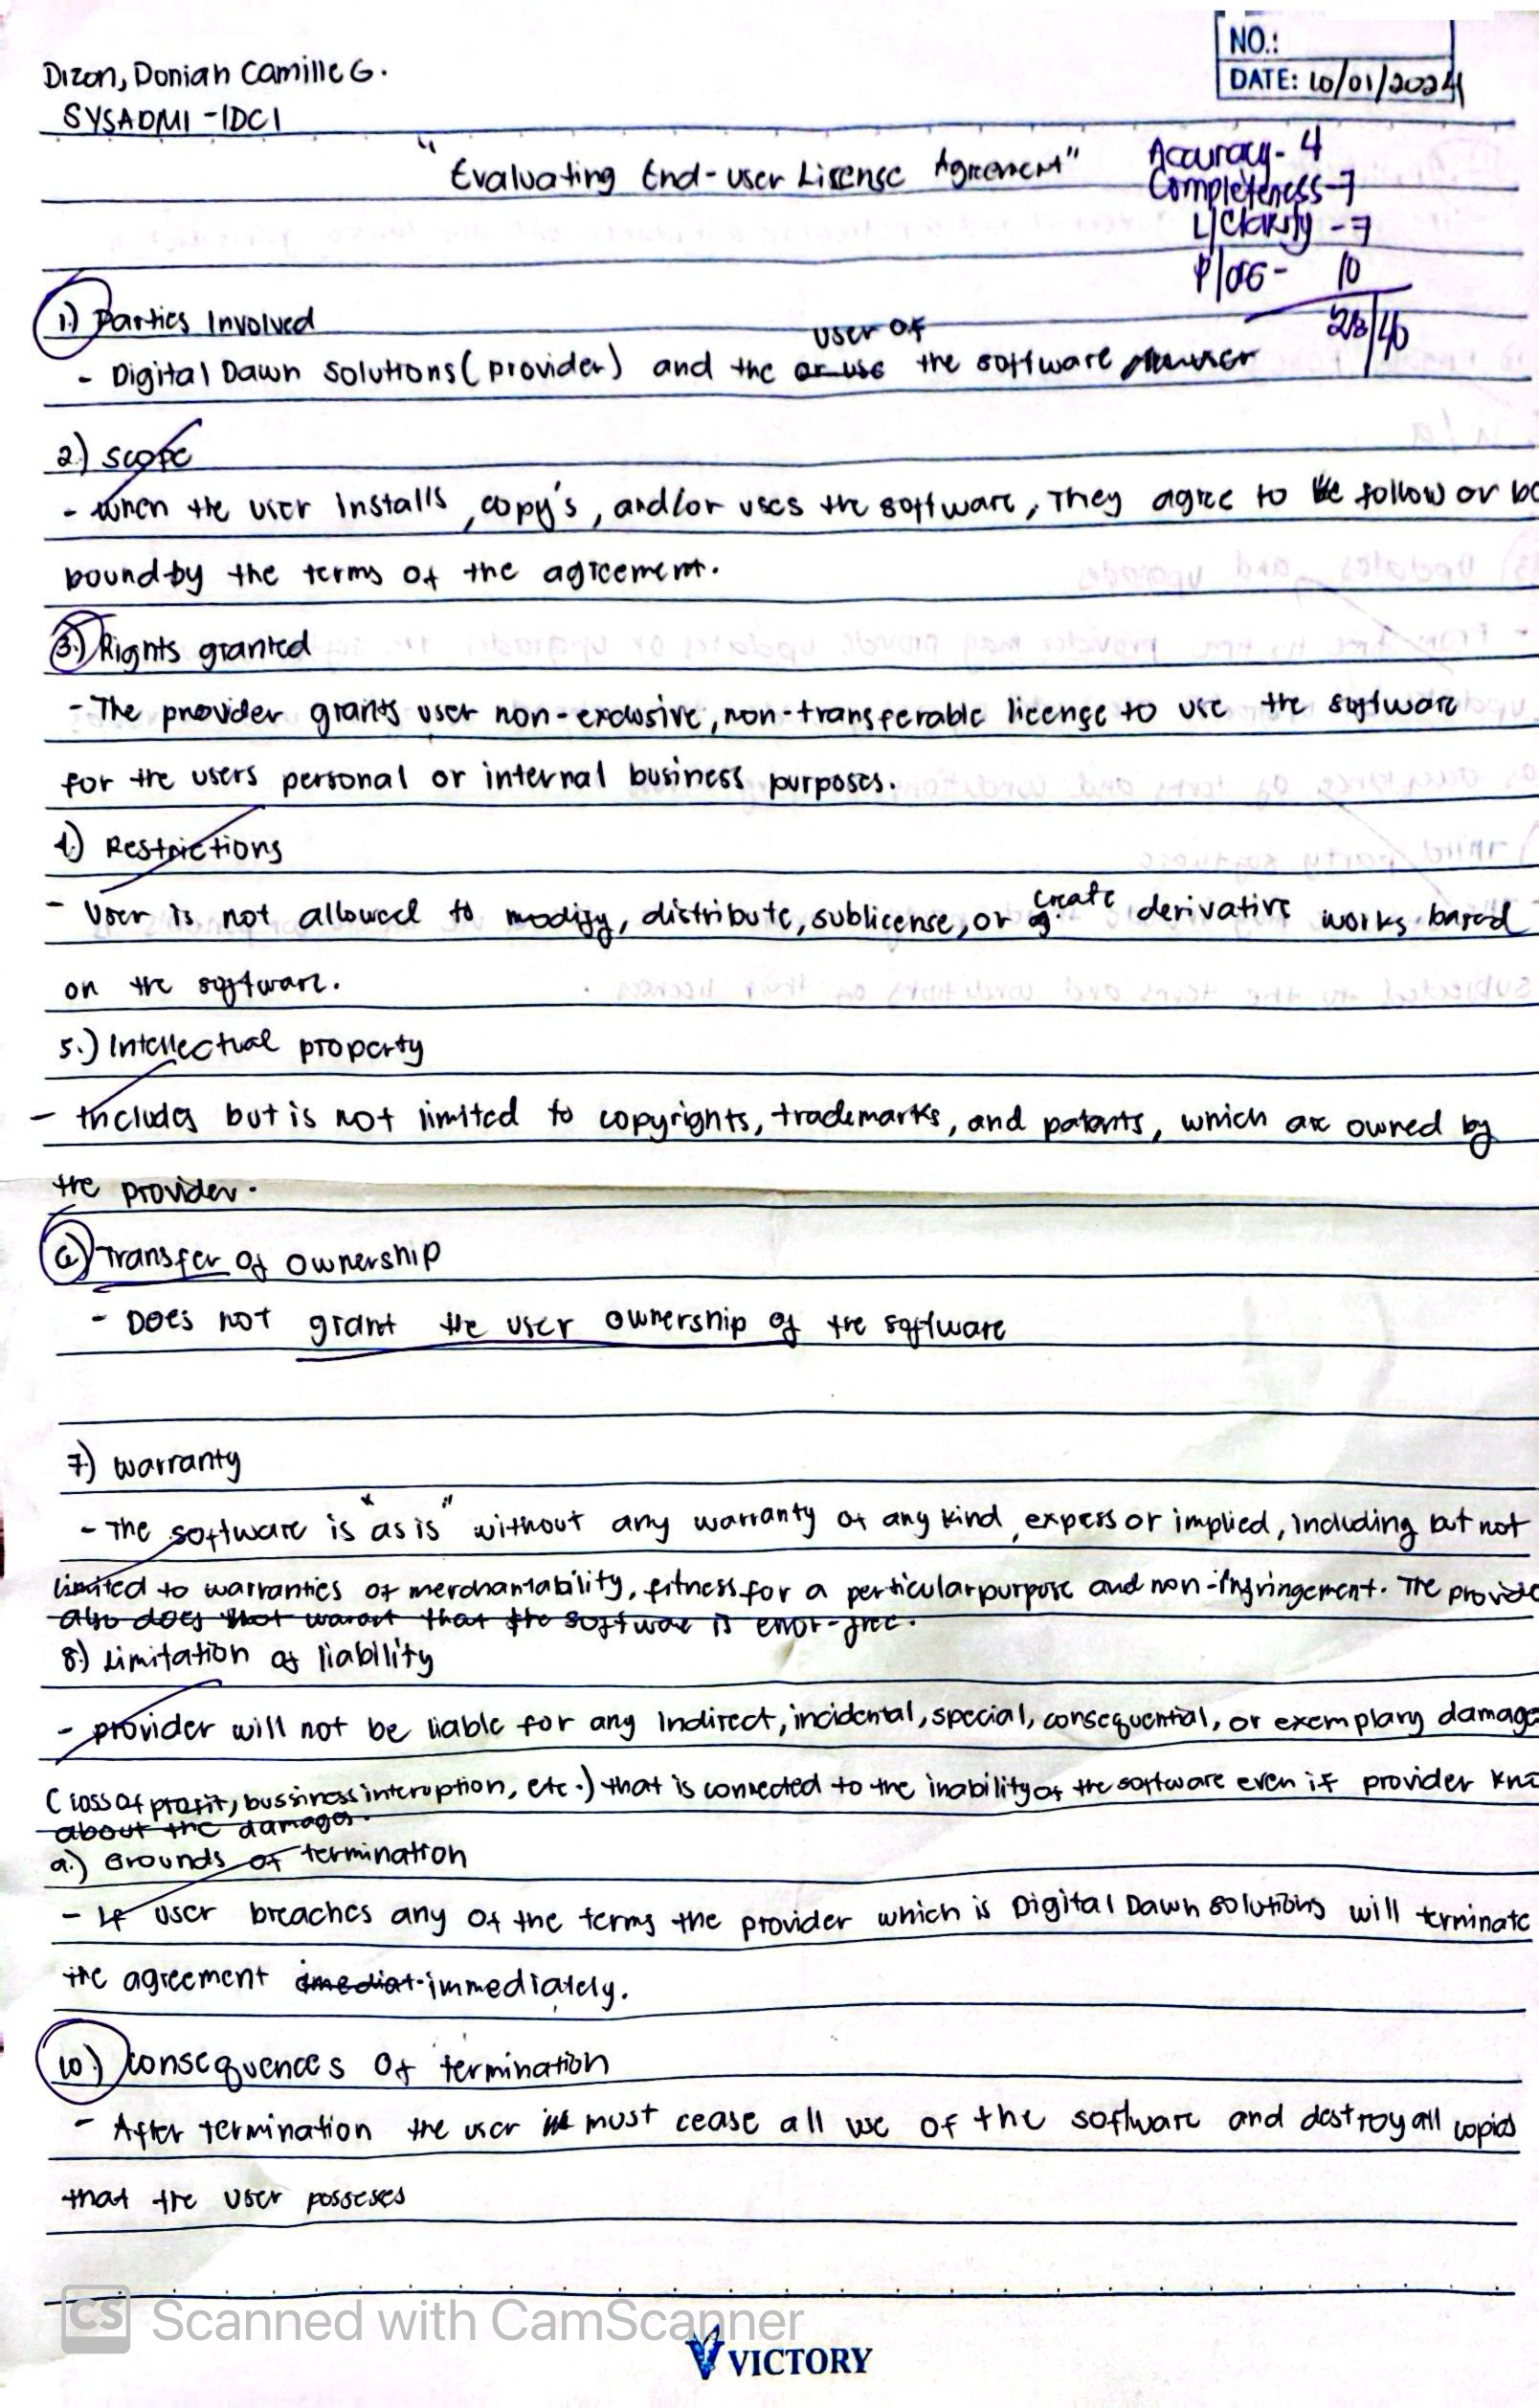 NO.:
DATE: 10/01/2024
Dizon, Donian Camille G.
SYSADM1 - IDC1
"Evaluating End-user Lisense Agreement"
Accuracy - 4
Completeness - 7
L/Clarity - 7
P/OG - 10
28/40
1.) Parties Involved
user of
- Digital Dawn Solutions (provider) and the or use the software
2.) Scope
- When the user Installs, copy's, and/or uses the software, They agree to follow or be
bound by the terms of the agreement.
3.) Rights granted
- The provider grants user non-exclusive, non-transferable license to use the software
for the users personal or internal business purposes.
4.) Restrictions
create
- User is not allowed to modify, distribute, sublicense, or derivative works based
on the software.
5.) Intellectual property
- Includes but is not limited to copyrights, trademarks, and patents, which are owned by
the provider.
6.) Transfer of ownership
- Does not grant the user ownership of the software
7.) Warranty
- The software is "as is" without any warranty of any kind, expess or implied, including but not
limited to warranties of merchantability, fitness for a perticular purpose and non-infringement. The provide
also does not warant that the software is error-free.
8.) Limitation of liability
- provider will not be liable for any Indirect, incidental, special, consequential, or exemplary damage
( loss of profit, bussiness interuption, etc.) that is connected to the inability of the software even if provider kno
about the damages.
9.) Grounds of termination
- If user breaches any of the terms the provider which is Digital Dawn solutions will terminate
the agreement imediat immediately.
10.) Consequences Of termination
- After termination the user must cease all use of the software and destroy all copies
that the user posseses
CS Scanned with CamScanner
VICTORY